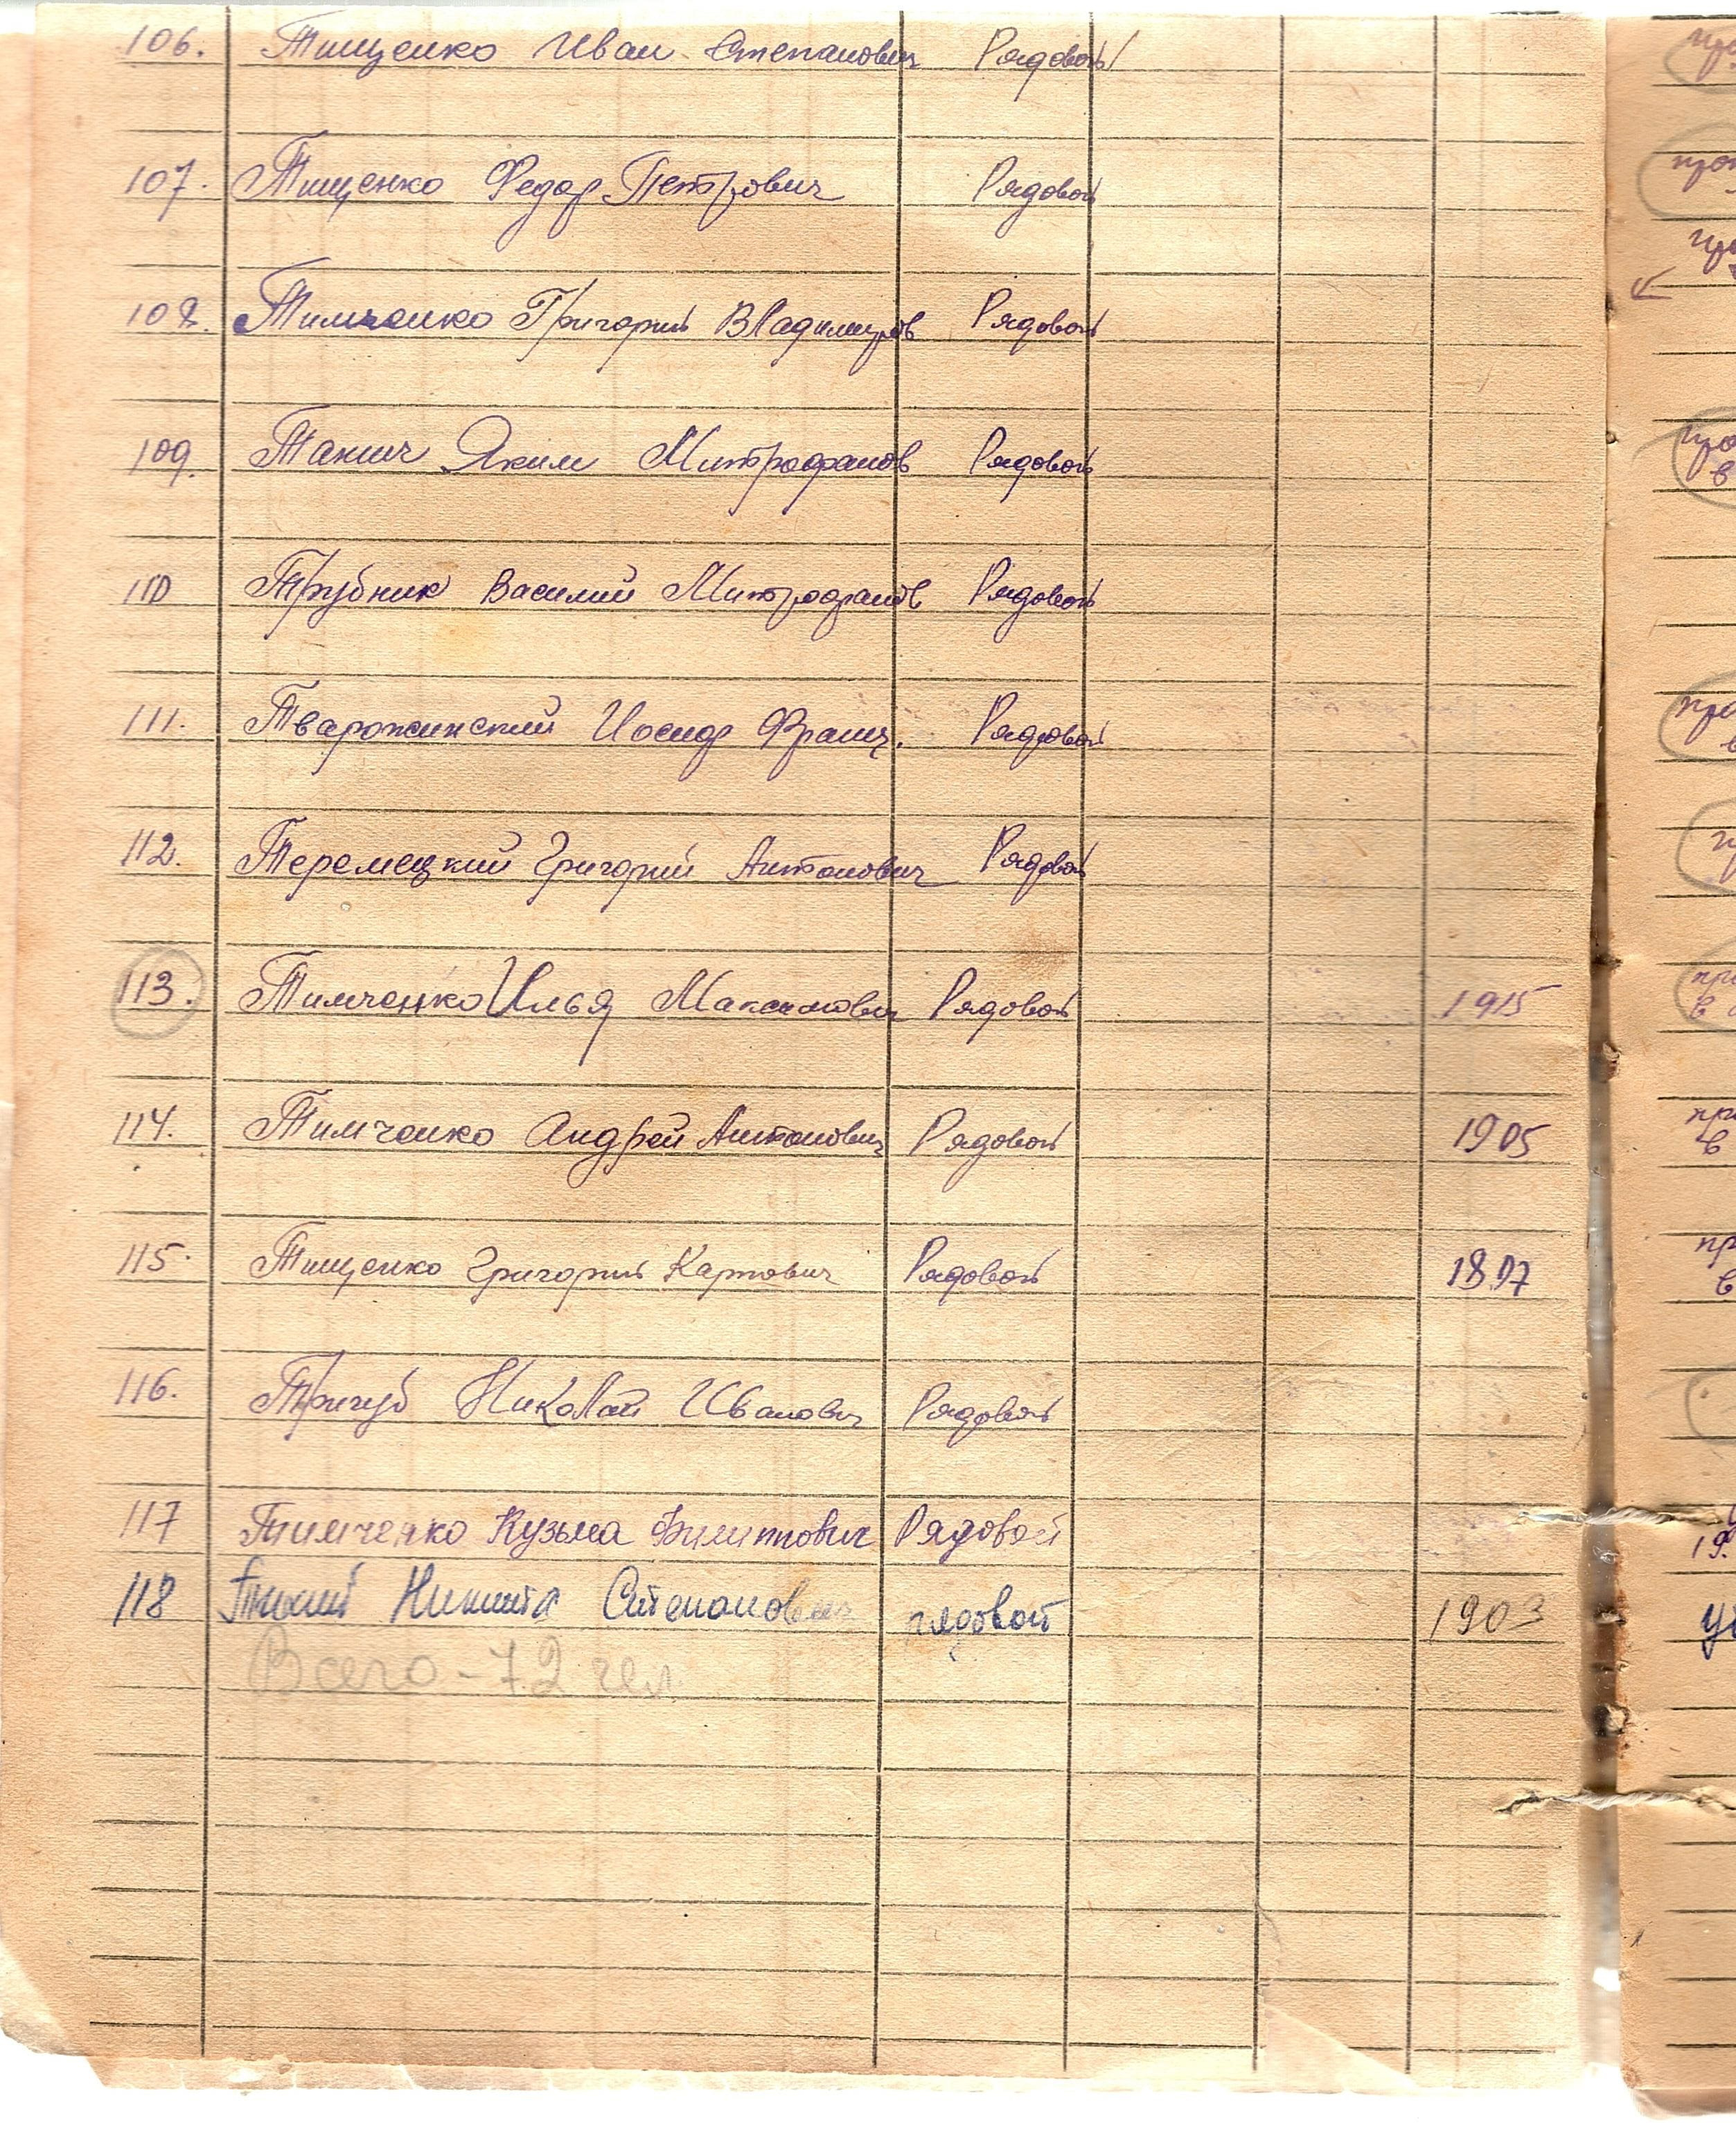 106. Тищенко Иван Степанович Рядовой
107. Тищенко Федор Петрович Рядовой
108. Тимченко Григорий Владимиров Рядовой
109. Такич Яким Митрофанов Рядовой
110 Трубник Василий Митрофанов Рядовой
111. Тварожинский Иосиф Франц. Рядовой
112. Теремецкий Григорий Антонович Рядовой
113. Тимченко Илья Максимович Рядовой 1915
114. Тимченко Андрей Антонович Рядовой 1905
115. Тищенко Григорий Карпович Рядовой
116. Тригуб Николай Иванович Рядовой
117 Тимченко Кузьма Филиппович Рядовой
118 Никита Степанович рядовой 1903
Всего - 72 чел.